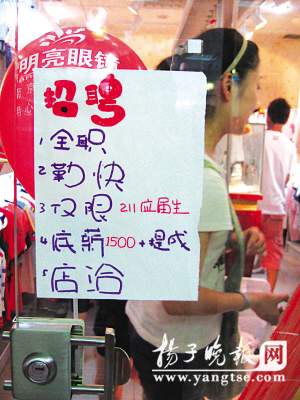 明亮眼镜
招聘
1 全职
2 勤快
3 仅限 211应届生
4 底薪1500+提成
5 店洽
扬子晚报网
www.yangtse.com